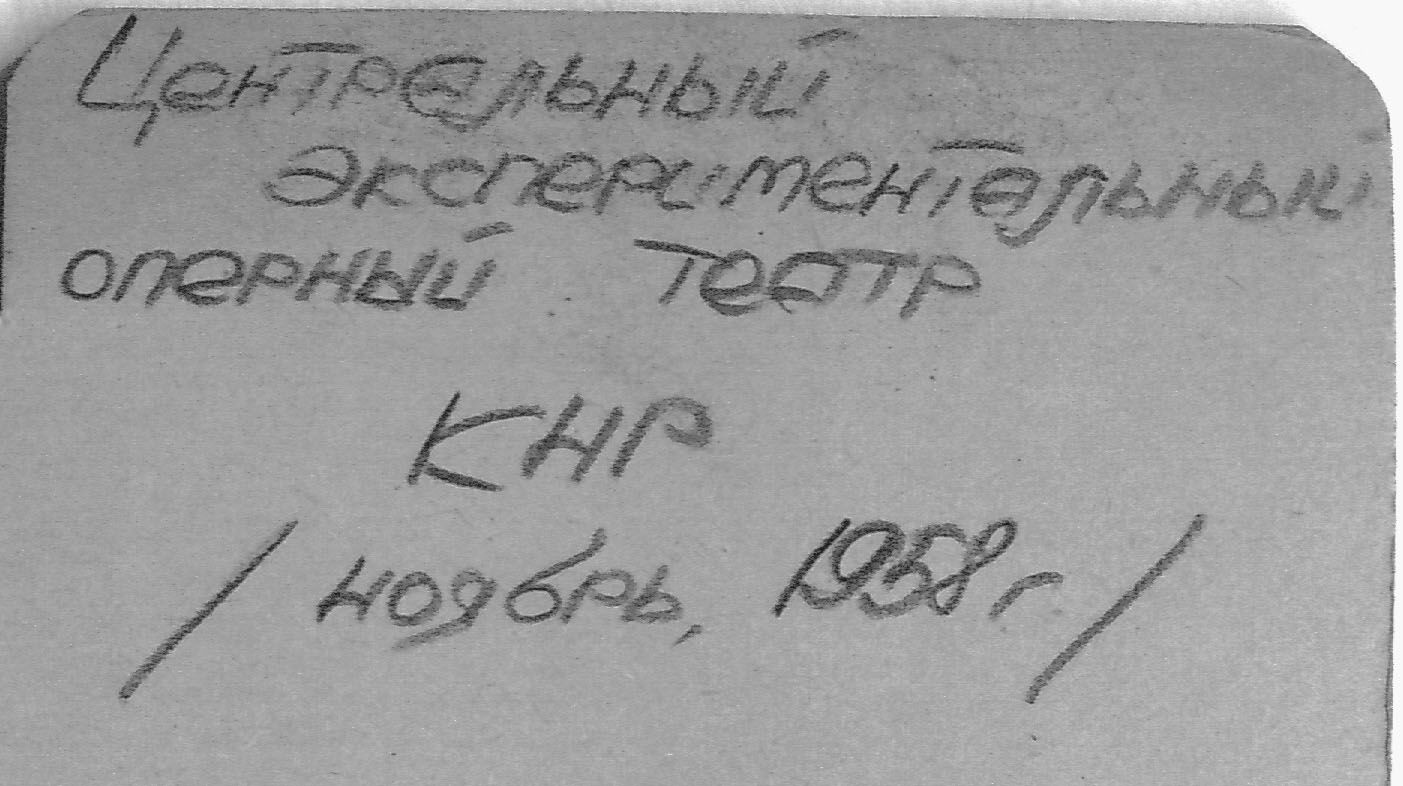 Центральный
экспериментальный
оперный театр
КНР
/ ноябрь, 1958 г /